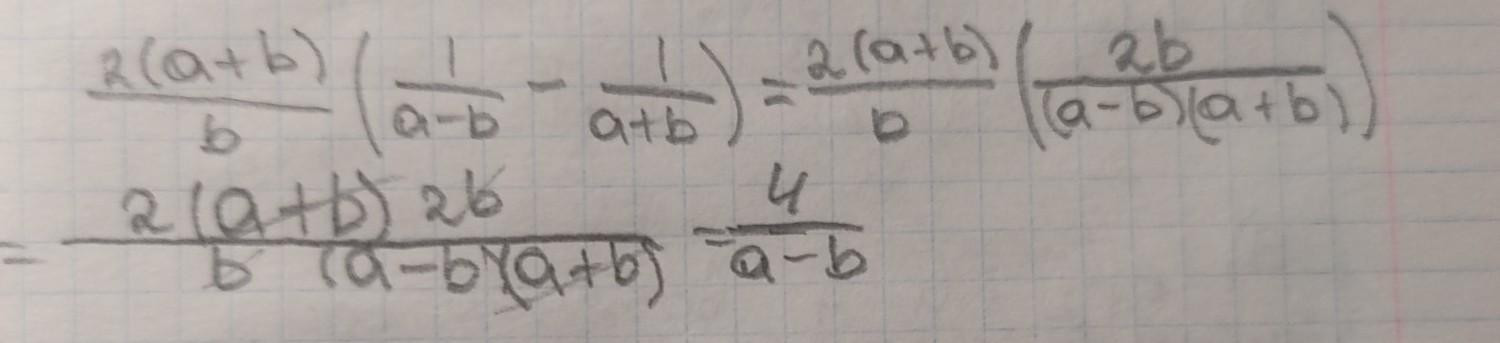 \frac{2(a+b)}{b} \left( \frac{1}{a-b} - \frac{1}{a+b} \right) = \frac{2(a+b)}{b} \left( \frac{2b}{(a-b)(a+b)} \right)
= \frac{2(a+b) 2b}{b (a-b)(a+b)} = \frac{4}{a-b}